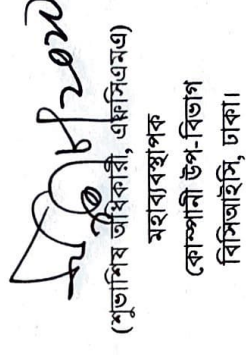 (শুভাশিষ অধিকারী, এফসিএমএ)
মহাব্যবস্থাপক
কোম্পানী উপ-বিভাগ
বিসিআইসি, ঢাকা।